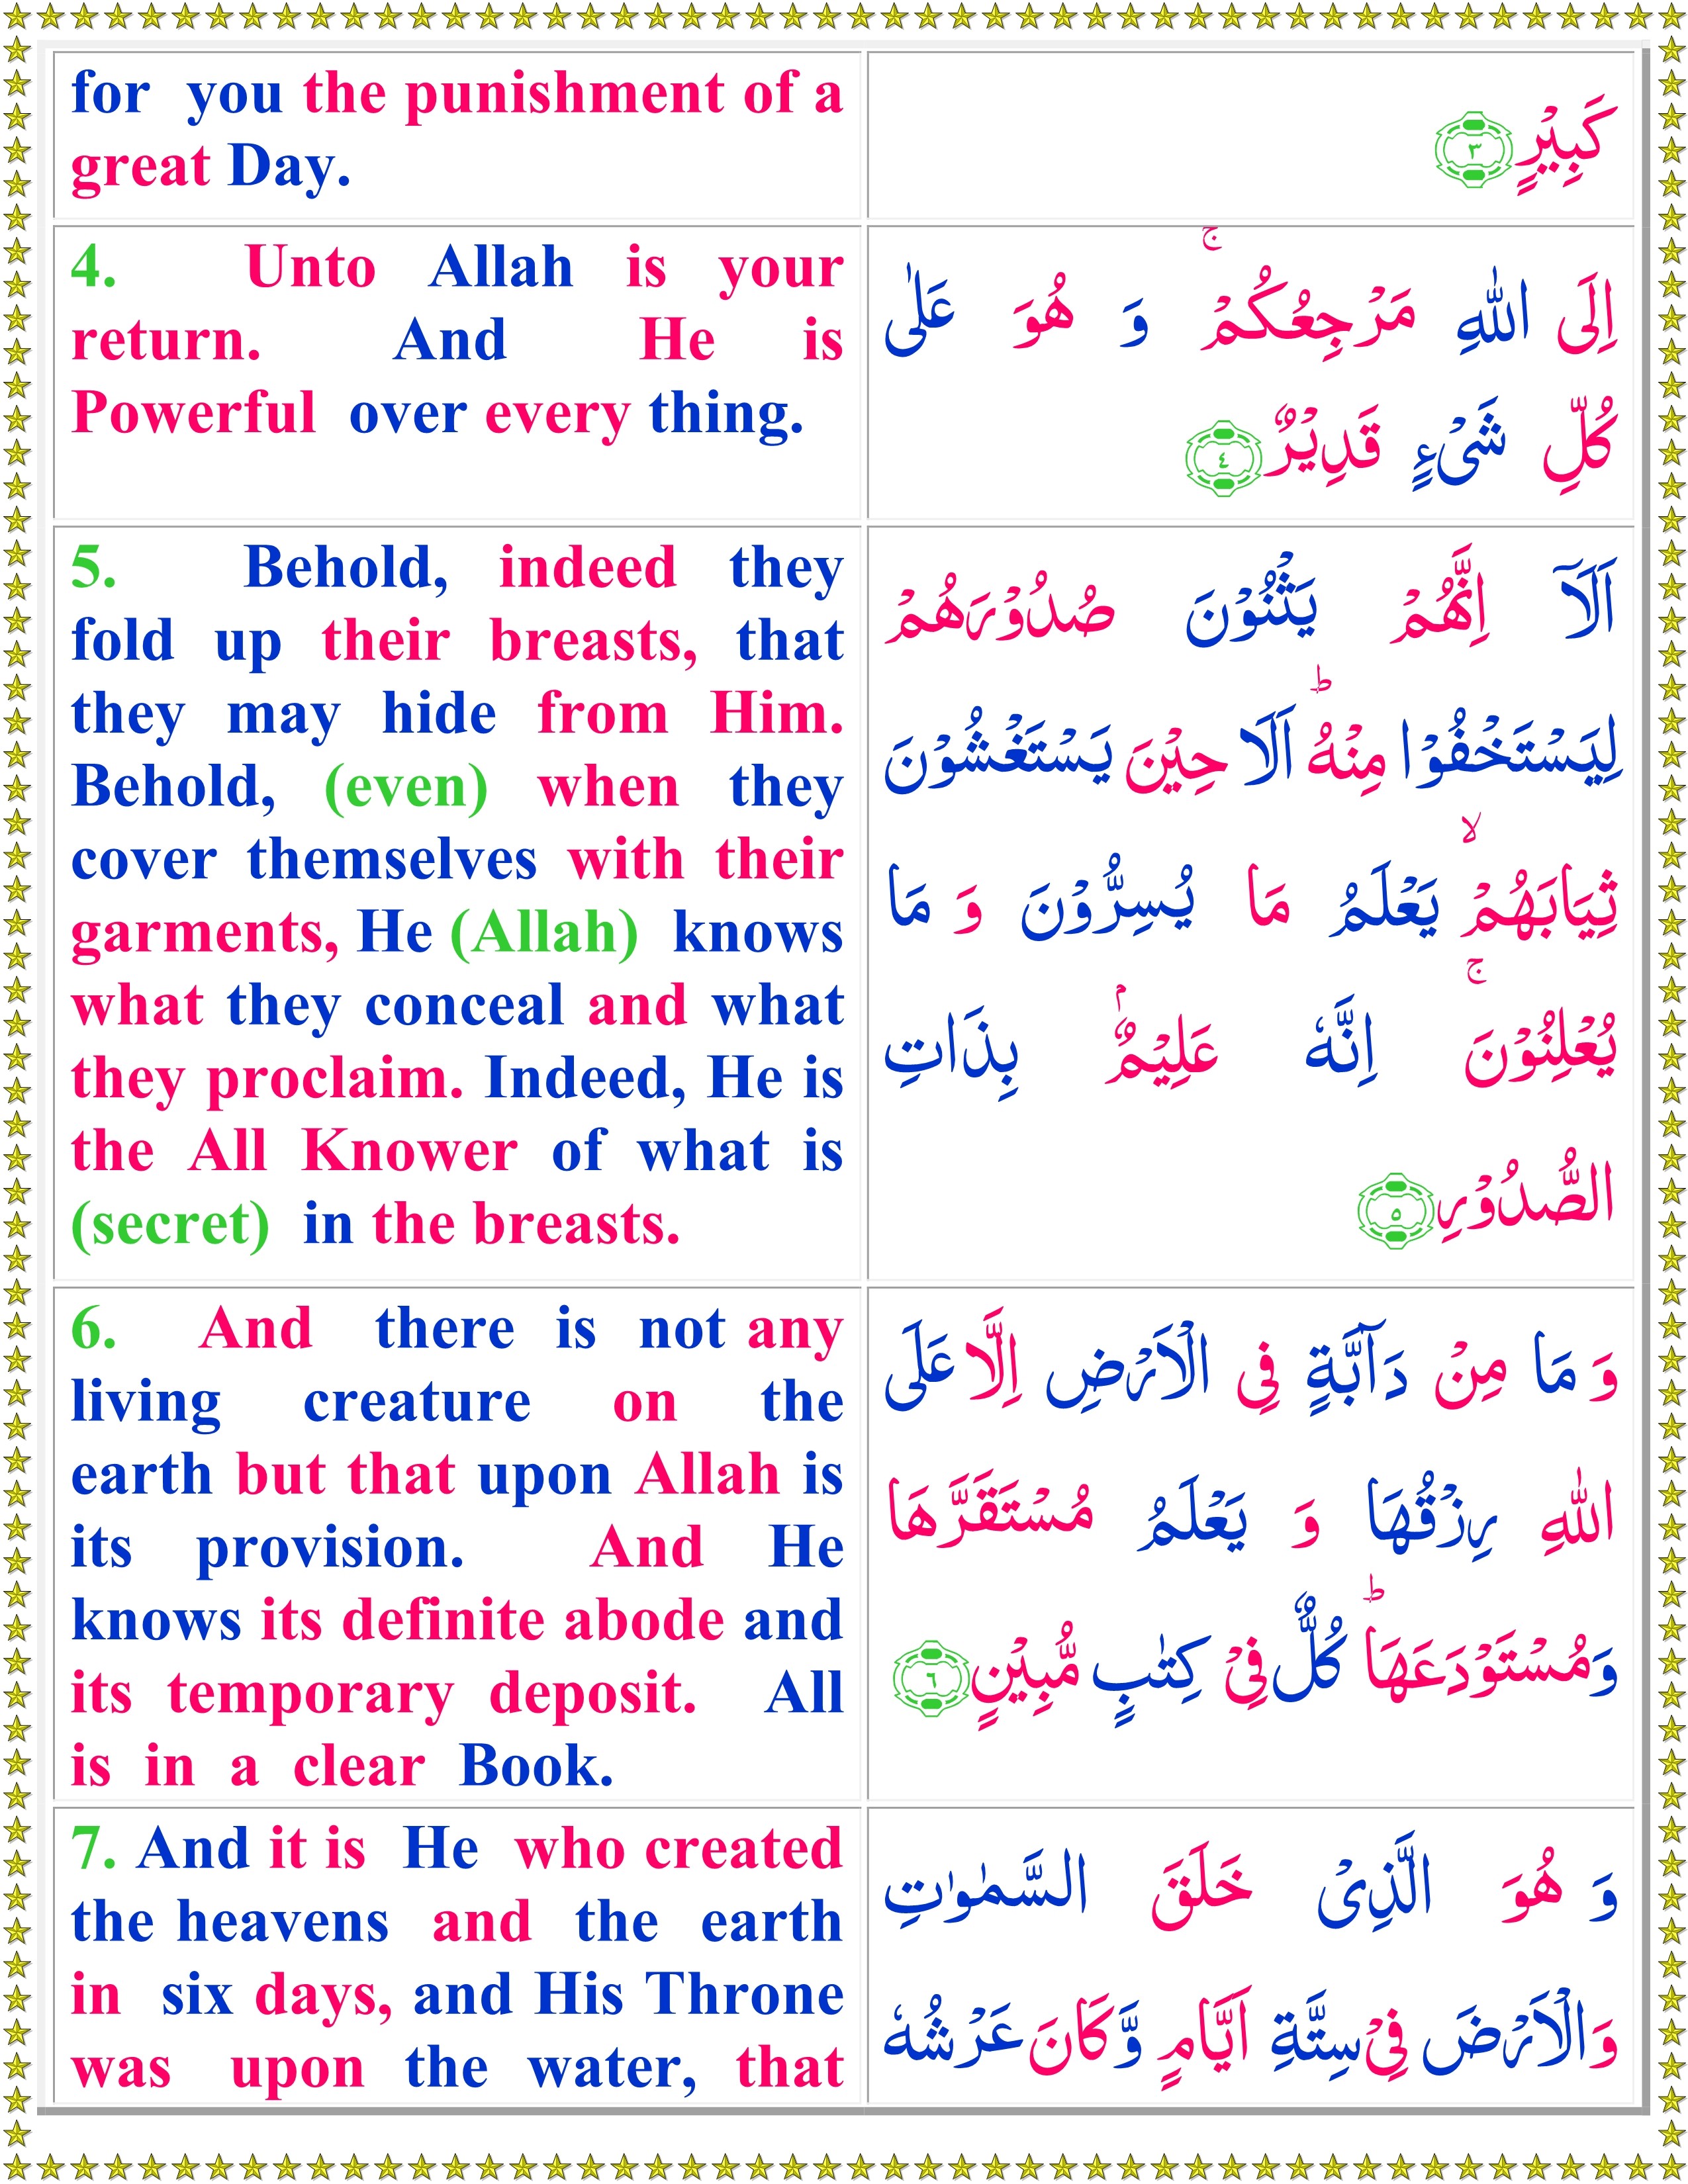 for you the punishment of a
great Day.
كَبِيْرٍ ٣
4. Unto Allah is your
return. And He is
Powerful over every thing.
اِلَى اللّٰهِ مَرْجِعُكُمْ ۚ وَ هُوَ عَلٰى
كُلِّ شَیْءٍ قَدِيْرٌ ٤
5. Behold, indeed they
fold up their breasts, that
they may hide from Him.
Behold, (even) when they
cover themselves with their
garments, He (Allah) knows
what they conceal and what
they proclaim. Indeed, He is
the All Knower of what is
(secret) in the breasts.
اَلَاۤ اِنَّهُمْ يَثْنُوْنَ صُدُوْرَهُمْ
لِيَسْتَخْفُوْا مِنْهُ ؕ اَلَا حِيْنَ يَسْتَغْشُوْنَ
ثِيَابَهُمْ ۙ يَعْلَمُ مَا يُسِرُّوْنَ وَ مَا
يُعْلِنُوْنَ ۚ اِنَّهٗ عَلِيْمٌۢ بِذَاتِ
الصُّدُوْرِ ٥
6. And there is not any
living creature on the
earth but that upon Allah is
its provision. And He
knows its definite abode and
its temporary deposit. All
is in a clear Book.
وَ مَا مِنْ دَآبَّةٍ فِى الْاَرْضِ اِلَّا عَلَى
اللّٰهِ رِزْقُهَا وَ يَعْلَمُ مُسْتَقَرَّهَا
وَمُسْتَوْدَعَهَا ؕ كُلٌّ فِىْ كِتٰبٍ مُّبِيْنٍ ٦
7. And it is He who created
the heavens and the earth
in six days, and His Throne
was upon the water, that
وَ هُوَ الَّذِىْ خَلَقَ السَّمٰوٰتِ
وَالْاَرْضَ فِىْ سِتَّةِ اَيَّامٍ وَّكَانَ عَرْشُهٗ